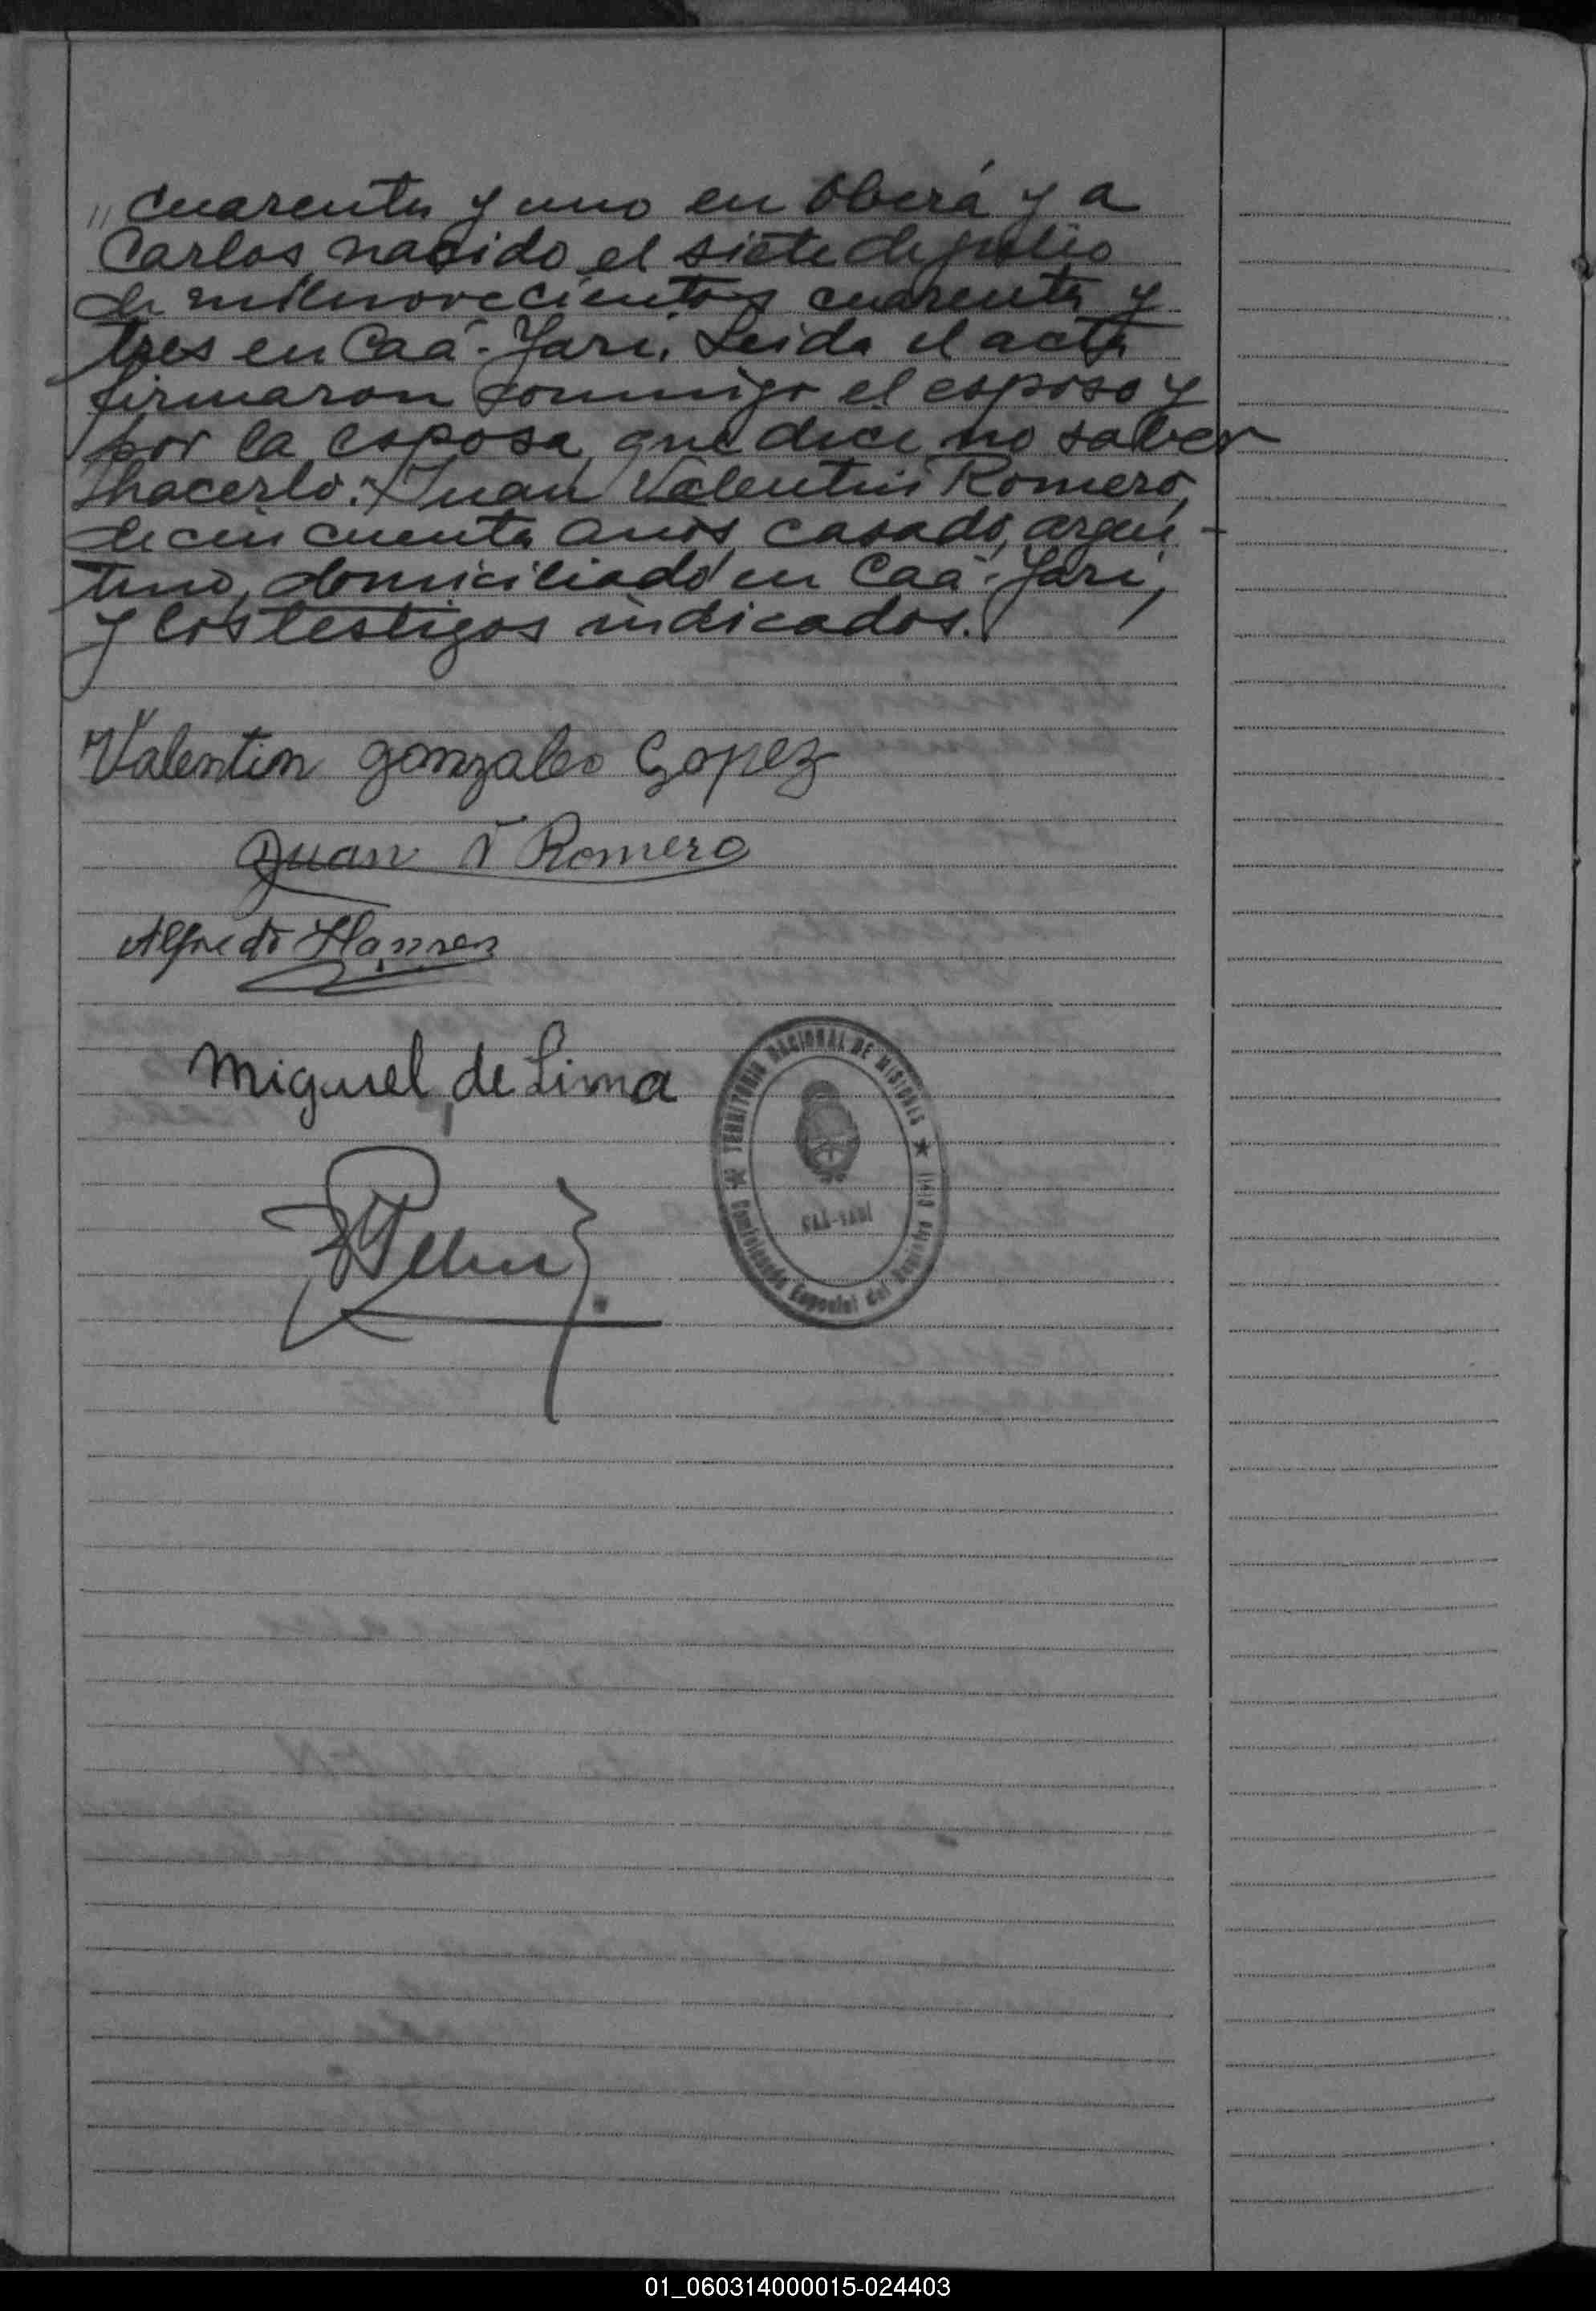 " cuarenta y uno en Oberá y a
Carlos nacido el siete de julio
de milnovecientos cuarenta y
tres en Caá-Yarí. Leida el acta
firmaron conmigo el esposo y
por la esposa, que dice no saber
hacerlo: Juan Valentin Romero,
de cincuenta años, casado, argen-
tino, domiciliado en Caá-Yarí,
y los testigos indicados.
Valentin gonzales Lopez
Juan V Romero
Alfredo
Miguel de Lima
TERRITORIO NACIONAL DE MISIONES
CAÁ-YARÍ
Comisionado Especial del Registro Civil
01_060314000015-024403